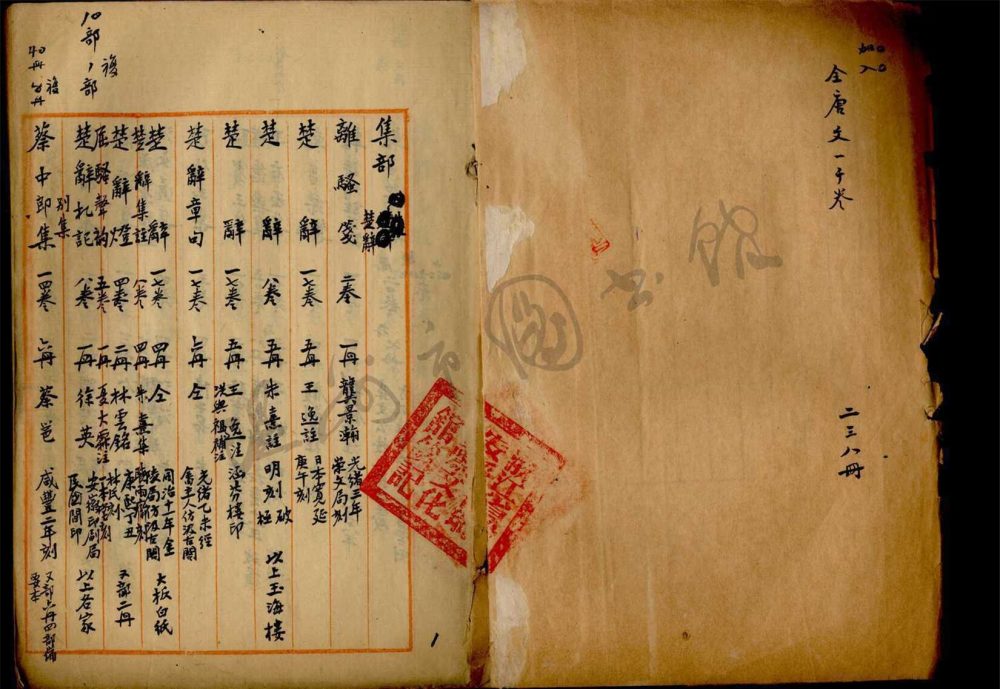 加入
全唐文一千卷
二三八冊
集部
楚辭
離騷箋 二卷 一冊 龔景瀚 光緒三年 崇文局刻
楚辭 一七卷 五冊 王逸註 日本寬延 庚午刻
楚辭 八卷 五冊 朱熹註 明刻 破極 以上玉海樓
楚辭 一七卷 五冊 王逸注 洪興祖補注 涵芬樓印
楚辭章句 一七卷 六冊 仝 光緒乙未經
楚辭 一七卷 四冊 仝 同治十一年金陵局仿汲古閣 大板白紙
楚辭集註 八卷 四冊 朱熹集
楚辭燈 四卷 二冊 林雲銘 康熙丁丑 又部二冊
屈騷聲韵 五卷 一冊 夏大霖注
楚辭札記 八卷 一冊 徐英 安徽印刷局 民國間印 以上各家
別集
蔡中郎集 一四卷 六冊 蔡邕 咸豐二年刻
10部 複1部
40冊 複
1
圖書館